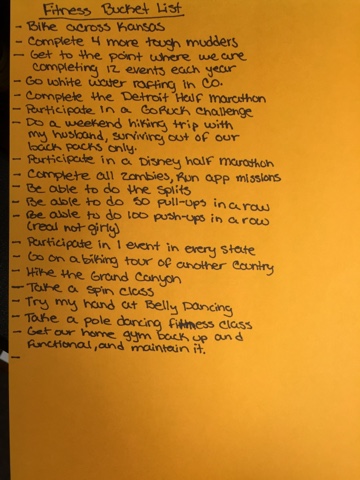 Fitness Bucket List
- Bike across Kansas
- Complete 4 more tough mudders
- Get to the point where we are
completing 12 events each year
- Go white water rafting in CO.
- Complete the Detroit Half marathon
- Participate in a GoRuck challenge
- Do a weekend hiking trip with
my husband, surviving out of our
back packs only.
- Participate in a Disney half marathon
- Complete all Zombies, Run app missions
- Be able to do the splits
- Be able to do 50 pull-ups in a row
- Be able to do 100 push-ups in a row
(real not girly)
- Participate in 1 event in every state
- Go on a biking tour of another country
- Hike the Grand Canyon
- Take a spin class
- Try my hand at Belly Dancing
- Take a pole dancing fitness class
- Get our home gym back up and
functional, and maintain it.
-